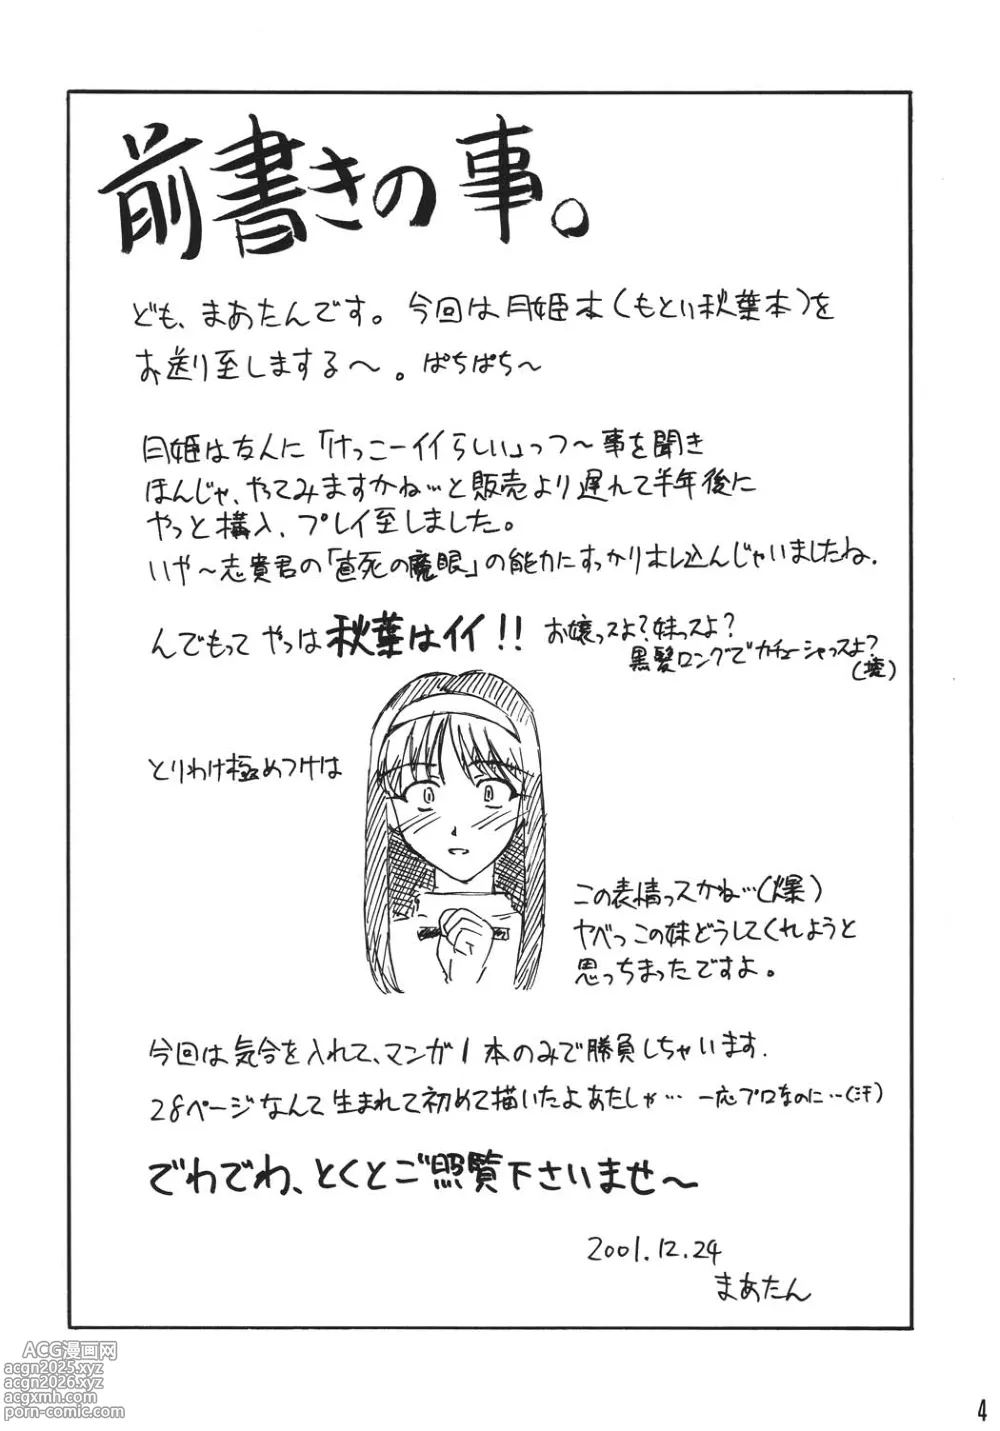 前書きの事。
ども、まあたんです。今回は月姫本(もとい秋葉本)を
お送り至しまする～。ぱちぱち～
月姫は友人に「けっこーイイらしい」っつ～事を聞き
ほんじゃ、やってみますかね…と販売より遅れて半年後に
やっと購入、プレイ至しました。
いや～志貴君の「直死の魔眼」の能力にすっかりホレ込んじゃいましたね.
んでもって やっは 秋葉はイイ!! お嬢っスよ?妹っスよ?
黒髪ロングでカチューシャっスよ?
とりわけ極めつけは
この表情っスかね…(爆)
ヤベっこの妹どうしてくれようと
思っちまったですよ。
今回は気合を入れて、マンガ1本のみで勝負しちゃいます.
28ページなんて生まれて初めて描いたよあたしゃ… 一応プロなのに…(汗)
でわでわ、とくとご照覧下さいませ～
2001.12.24
まあたん
4
ACG漫画网
acgn2025.xyz
acgn2026.xyz
acgxmh.com
porn-comic.com